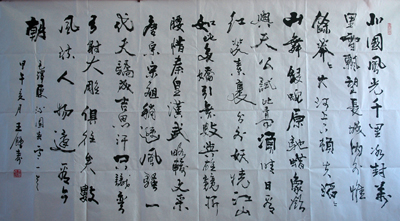 北國風光千里冰封萬
里雪飄望長城内外惟
餘莽莽大河上下頓失滔滔
山舞銀蛇原馳蠟象欲
與天公試比高須晴日看
紅裝素裹分外妖嬈江山
如此多嬌引無數英雄競折
腰惜秦皇漢武略輸文采
唐宗宋祖稍遜風騷一
代天驕成吉思汗只識彎
弓射大雕俱往矣數
風流人物還看今
朝
毛澤東沁園春雪
甲午